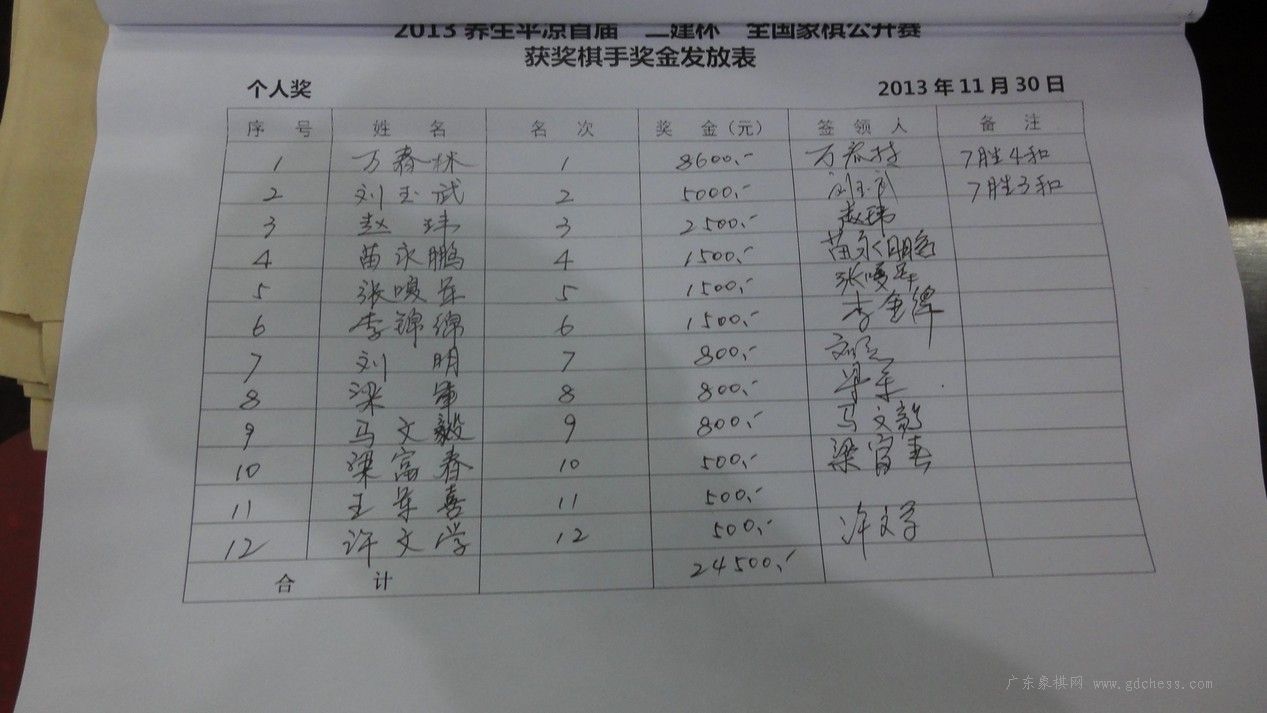 2013 养生平凉首届 二建杯 全国象棋公开赛
获奖棋手奖金发放表
个人奖 2013 年 11 月 30 日
序 号 姓 名 名 次 奖 金（元） 签 领 人 备 注
1 万春林 1 8600.- 万春林 7胜4和
2 刘玉武 2 5000.- 刘玉武 7胜3和
3 赵玮 3 2500.- 赵玮
4 苗永鹏 4 1500.- 苗永鹏
5 张嗅军 5 1500.- 张嗅军
6 李锦绵 6 1500.-
7 刘明 7 800.- 刘明
8 梁军 8 800.- 梁军
9 马文毅 9 800.- 马文毅
10 梁富春 10 500.- 梁富春
11 王军喜 11 500.-
12 许文学 12 500.- 许文学
合 计 24500.-
广东象棋网 www.gdchess.com